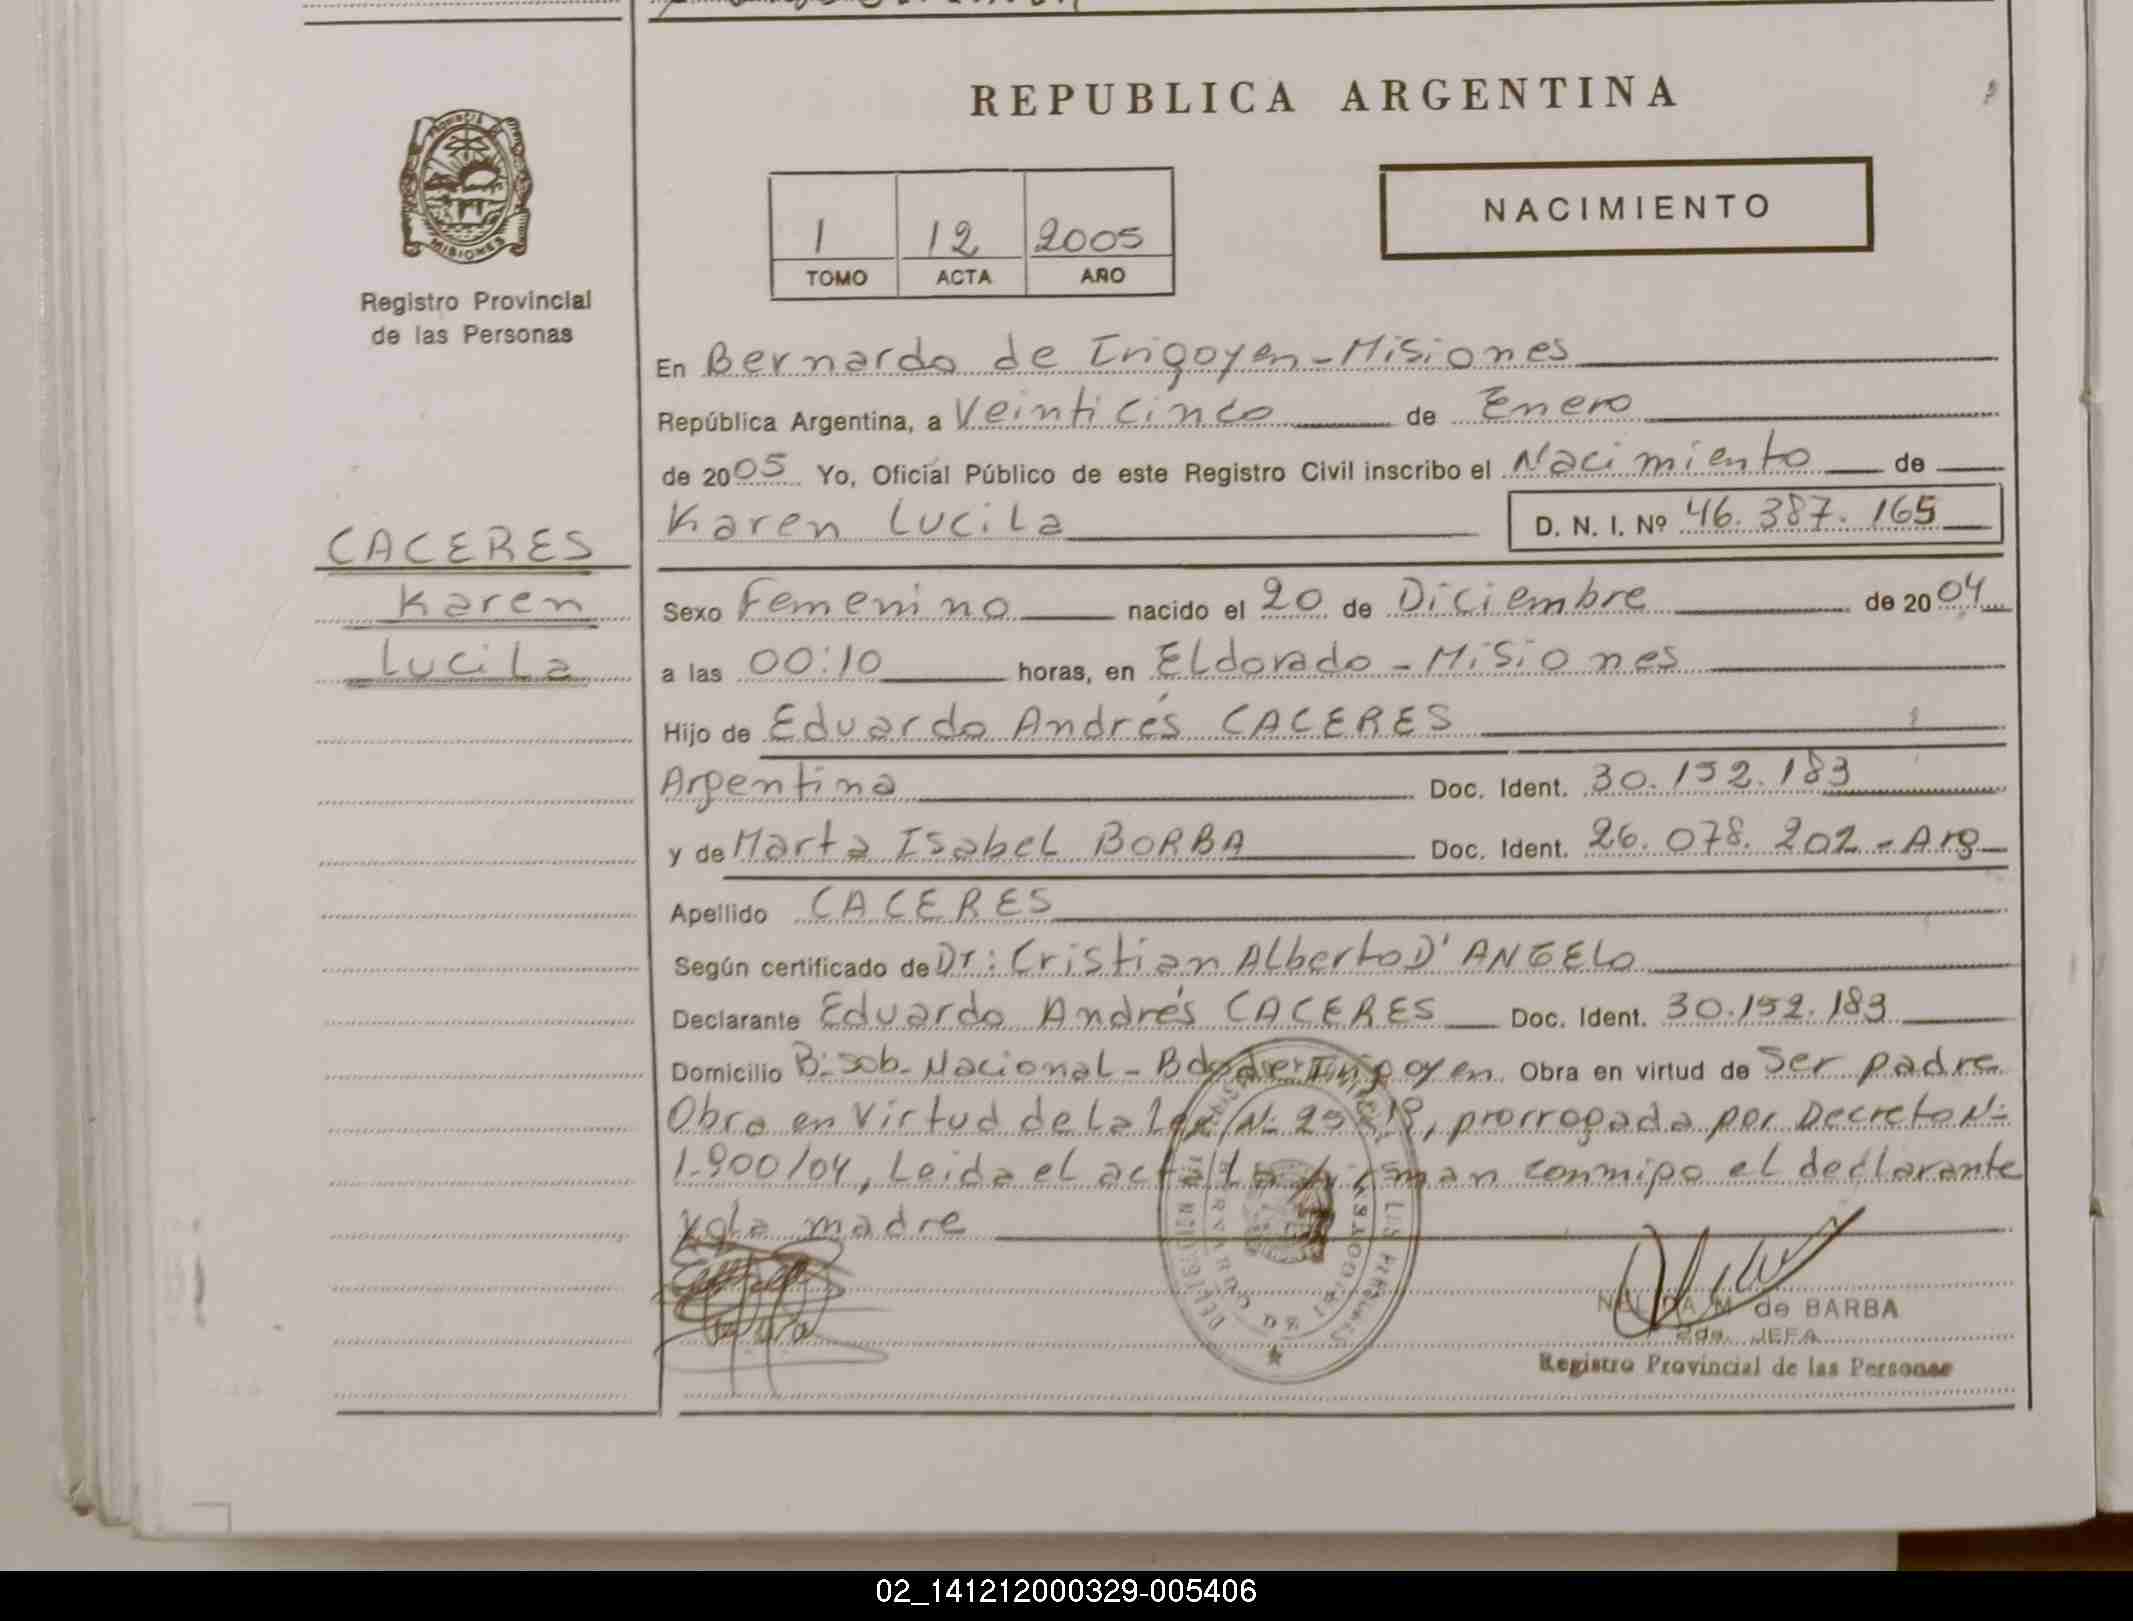 REPUBLICA ARGENTINA
PROVINCIA DE
MISIONES
Registro Provincial
de las Personas
1 12 2005
TOMO ACTA AÑO
NACIMIENTO
En Bernardo de Irigoyen - Misiones
República Argentina, a Veinticinco de Enero
de 2005 Yo, Oficial Público de este Registro Civil inscribo el Nacimiento de
Karen Lucila D. N. I. Nº 46.387.165
CACERES
Karen
Lucila
Sexo Femenino nacido el 20 de Diciembre de 2004
a las 00:10 horas, en Eldorado - Misiones
Hijo de Eduardo Andrés CACERES
Argentina Doc. Ident. 30.152.183
y de Marta Isabel BORBA Doc. Ident. 26.078.202 - Arg
Apellido CACERES
Según certificado de Dr: Cristian Alberto D'ANGELO
Declarante Eduardo Andrés CACERES Doc. Ident. 30.152.183
Domicilio B: Sob. Nacional - Bdo de Irigoyen Obra en virtud de Ser padre
Obra en Virtud de la Ley N: 25. , prorrogada por Decreto N:
1.900/04, Leida el acta la firman conmigo el declarante
y la madre
NELIDA M. de BARBA
2da. JEFA
Registro Provincial de las Personas
02_141212000329-005406